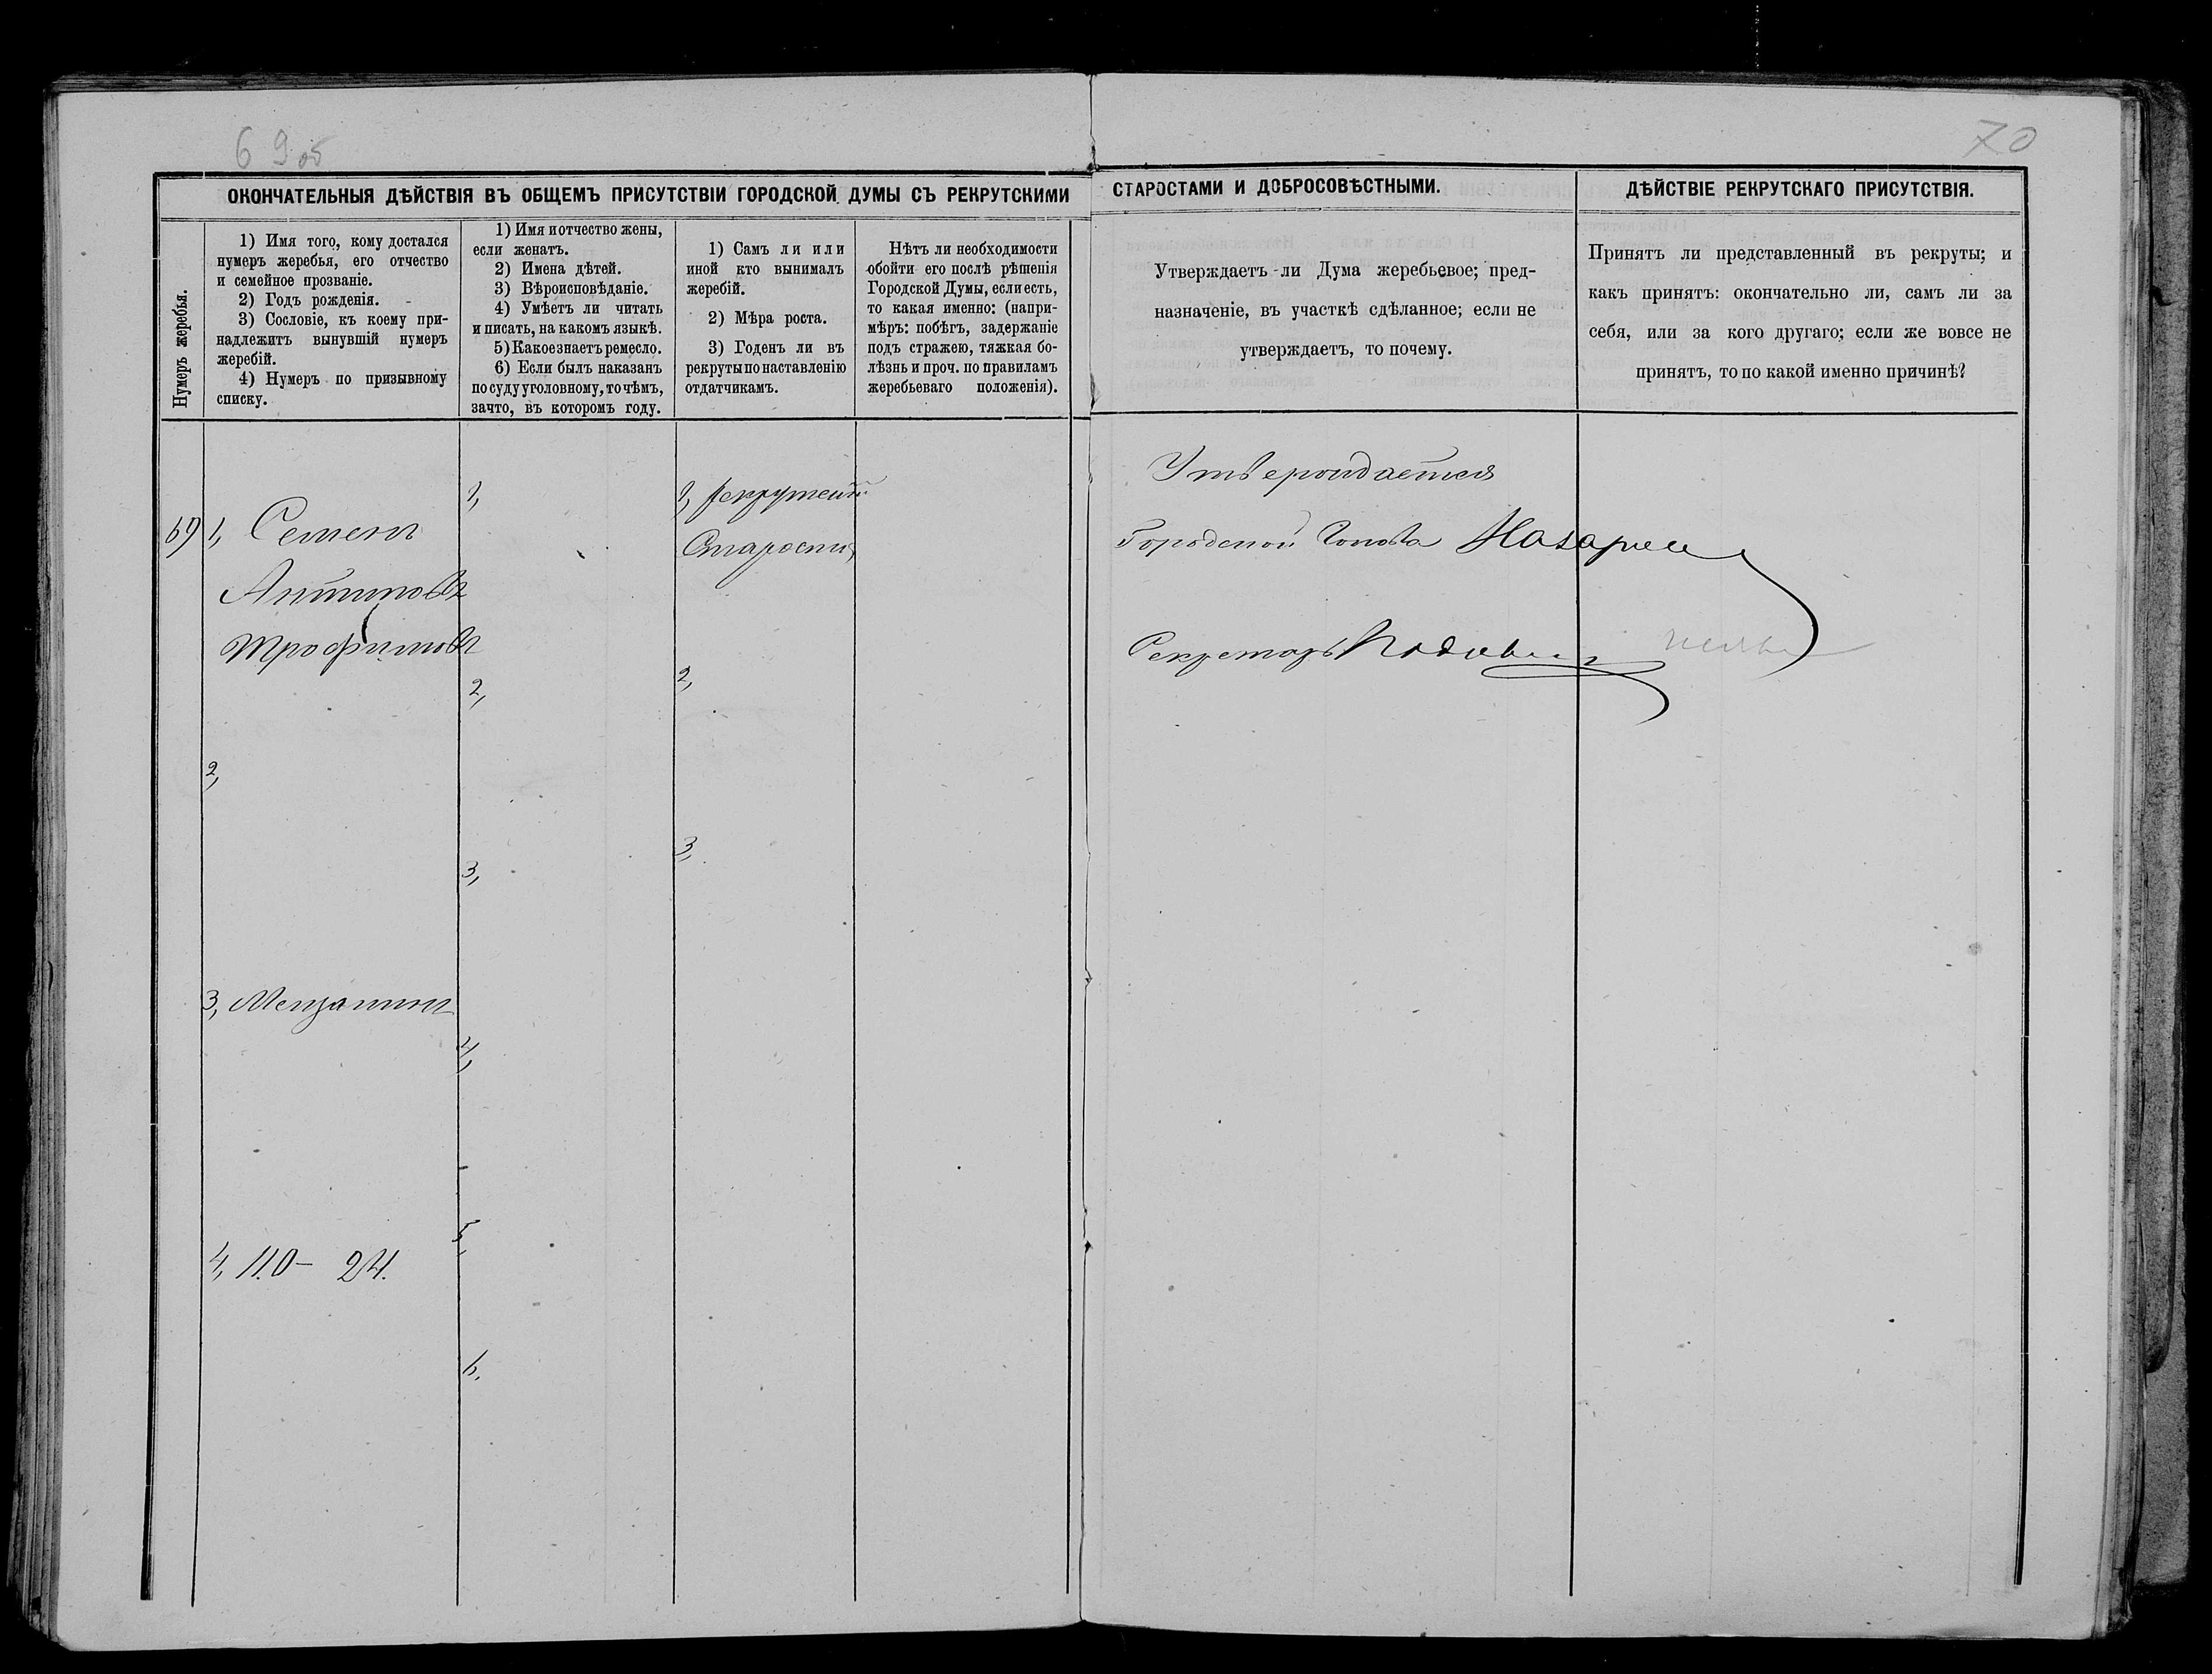 69 об
70
ОКОНЧАТЕЛЬНЫЯ ДѢЙСТВІЯ ВЪ ОБЩЕМЪ ПРИСУТСТВІИ ГОРОДСКОЙ ДУМЫ СЪ РЕКРУТСКИМИ СТАРОСТАМИ И ДОБРОСОВѢСТНЫМИ.
ДѢЙСТВІЕ РЕКРУТСКАГО ПРИСУТСТВІЯ.
Нумеръ жеребья.
1) Имя того, кому достался
нумеръ жеребья, его отчество
и семейное прозваніе.
2) Годъ рожденія.
3) Сословіе, къ коему при-
надлежитъ вынувшій нумеръ
жеребій.
4) Нумеръ по призывному
списку.
1) Имя и отчество жены,
если женатъ.
2) Имена дѣтей.
3) Вѣроисповѣданіе.
4) Умѣетъ ли читать
и писать, на какомъ языкѣ.
5) Какое знаетъ ремесло.
6) Если былъ наказанъ
по суду уголовному, то чѣмъ,
за что, въ которомъ году.
1) Самъ ли или
иной кто вынималъ
жеребій.
2) Мѣра роста.
3) Годенъ ли въ
рекруты по наставленію
отдатчикамъ.
Нѣтъ ли необходимости
обойти его послѣ рѣшенія
Городской Думы, если есть,
то какая именно: (напри-
мѣръ: побѣгъ, задержаніе
подъ стражею, тяжкая бо-
лѣзнь и проч. по правиламъ
жеребьеваго положенія).
Утверждаетъ ли Дума жеребьевое; пред-
назначеніе, въ участкѣ сдѣланное; если не
утверждаетъ, то почему.
Принятъ ли представленный въ рекруты; и
какъ принятъ: окончательно ли, самъ ли за
себя, или за кого другаго; если же вовсе не
принятъ, то по какой именно причинѣ?
69
1, Семенъ
Антиповъ
Трофимовъ
2,
3, Мещанинъ
4, 110 — 24.
1,
2,
3,
4,
5,
6.
1, рекрутскій
Староста
2,
3,
Утверждается
Городской Голова
Секретарь